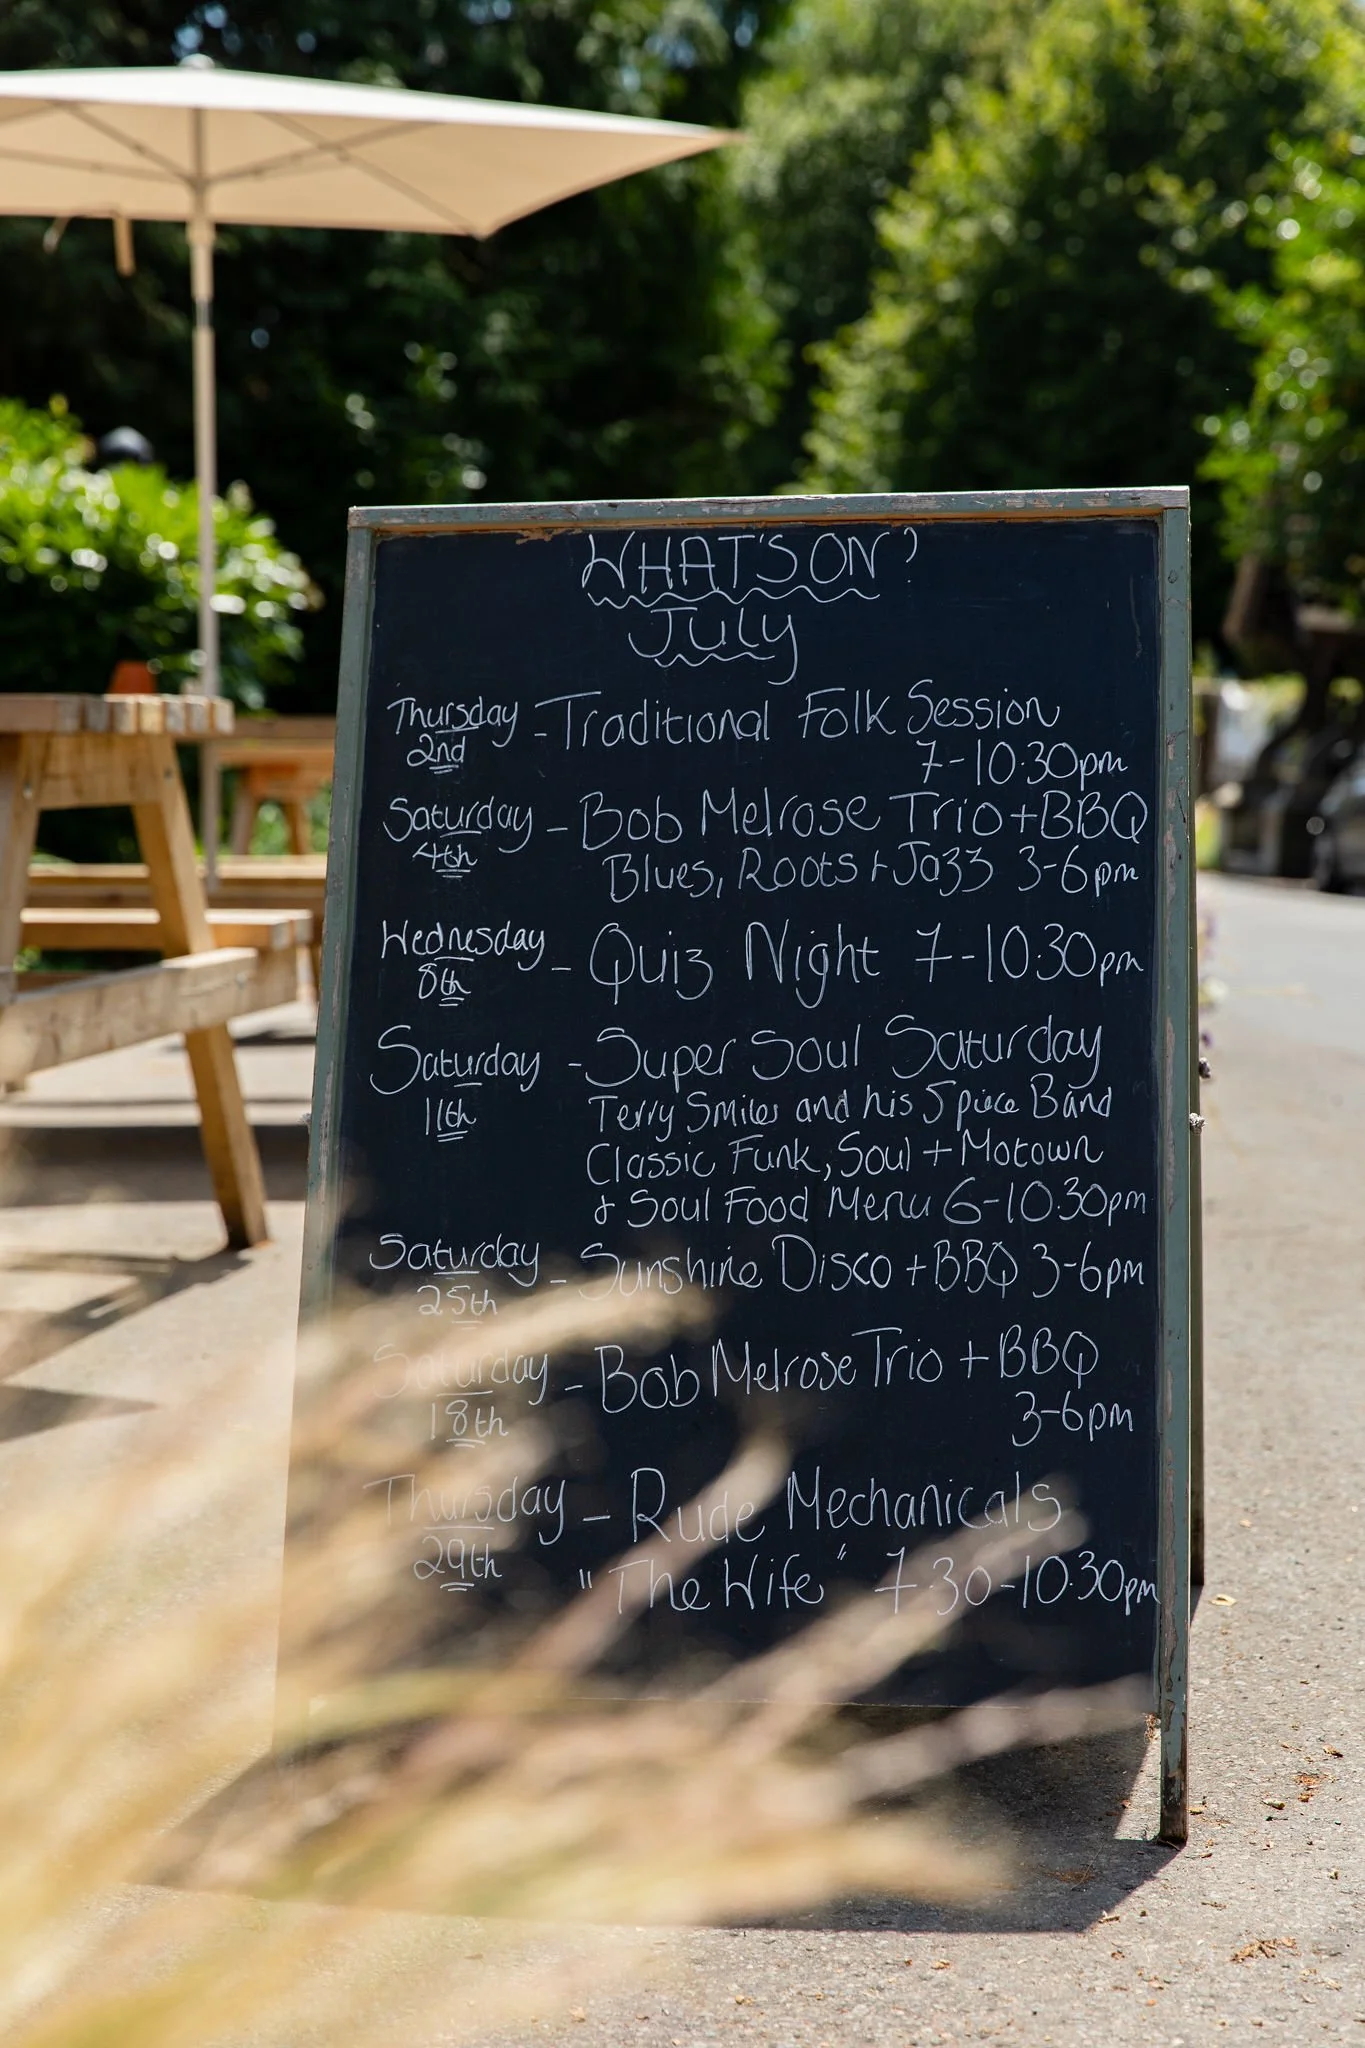 WHAT'S ON?
July
Thursday 2nd - Traditional Folk Session
7-10.30pm
Saturday 4th - Bob Melrose Trio + BBQ
Blues, Roots + Jazz 3-6pm
Wednesday 8th - Quiz Night 7-10.30pm
Saturday 11th - Super Soul Saturday
Terry Smiles and his 5 piece Band
Classic Funk, Soul + Motown
& Soul Food Menu 6-10.30pm
Saturday 25th - Sunshine Disco + BBQ 3-6pm
Saturday 18th - Bob Melrose Trio + BBQ
3-6pm
Thursday 29th - Rude Mechanicals
"The Wife" 7.30-10.30pm